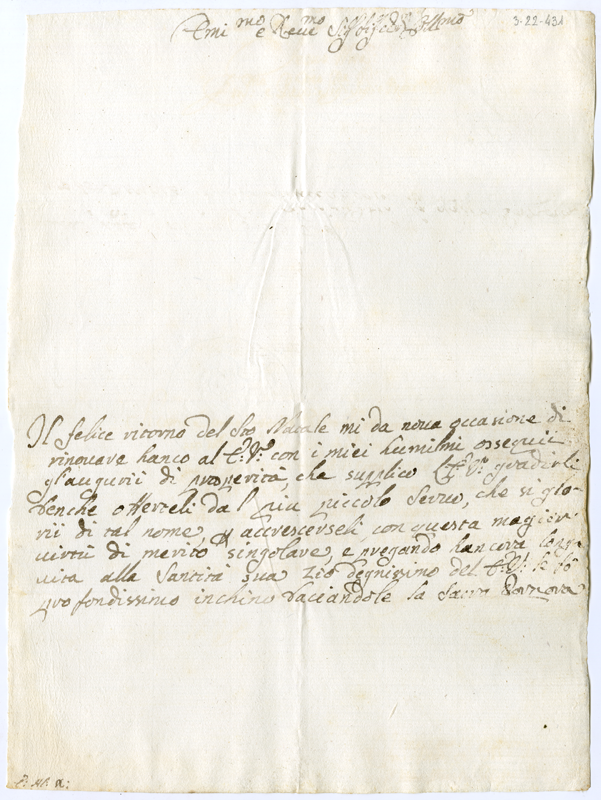 3-22-431
Emi.mo e Reue.mo Sig.r
Il felice ritorno del Sto Natale mi da noua occasione di
rinouare hanco al E: V: con i miei humilmi ossequii
gl'augurii di prosperità, che supplico E: V: gradirli
benche offerteli dal piu piccolo Seruo, che si glo-
rii di tal nome, p accrescerseli con questa maggior
uirtù di merito singolare, e pregando hancora longa
uita alla Santità sua Zio degnissimo del E: V: le fo
profondissimo inchino baciandole la Sacra Porpora